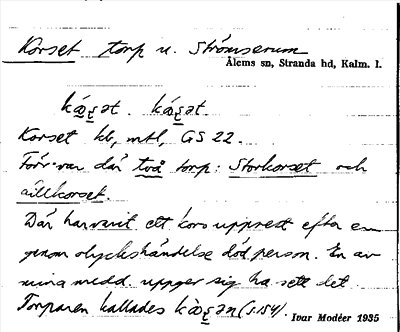 Korset torp u. Strömserum
Ålems sn, Stranda hd, Kalm. l.
Korset kb, mtl, GS 22.
Förr var där två torp: Storkorset och
Lillkorset.
Där har varit ett kors upprest efter en
genom olyckshändelse död person. En av
mina medd. uppger sig ha sett det.
Torparen kallades (s. 154).
Ivar Modéer 1935